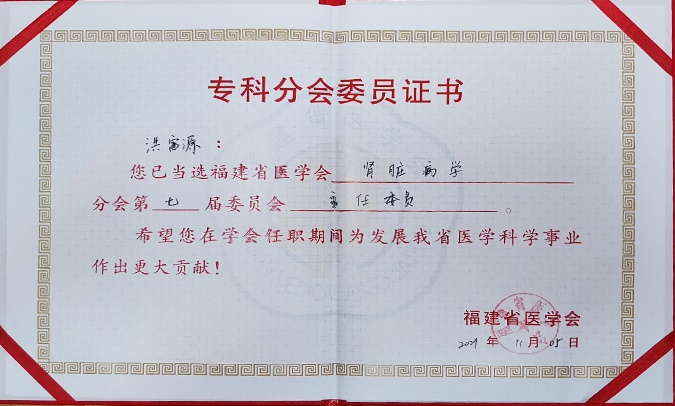 专科分会委员证书
洪富源：
您已当选福建省医学会 肾脏病学
分会第 七 届委员会 主任委员 。
希望您在学会任职期间为发展我省医学科学事业
作出更大贡献！
福建省医学会
2021 年 11 月 05 日